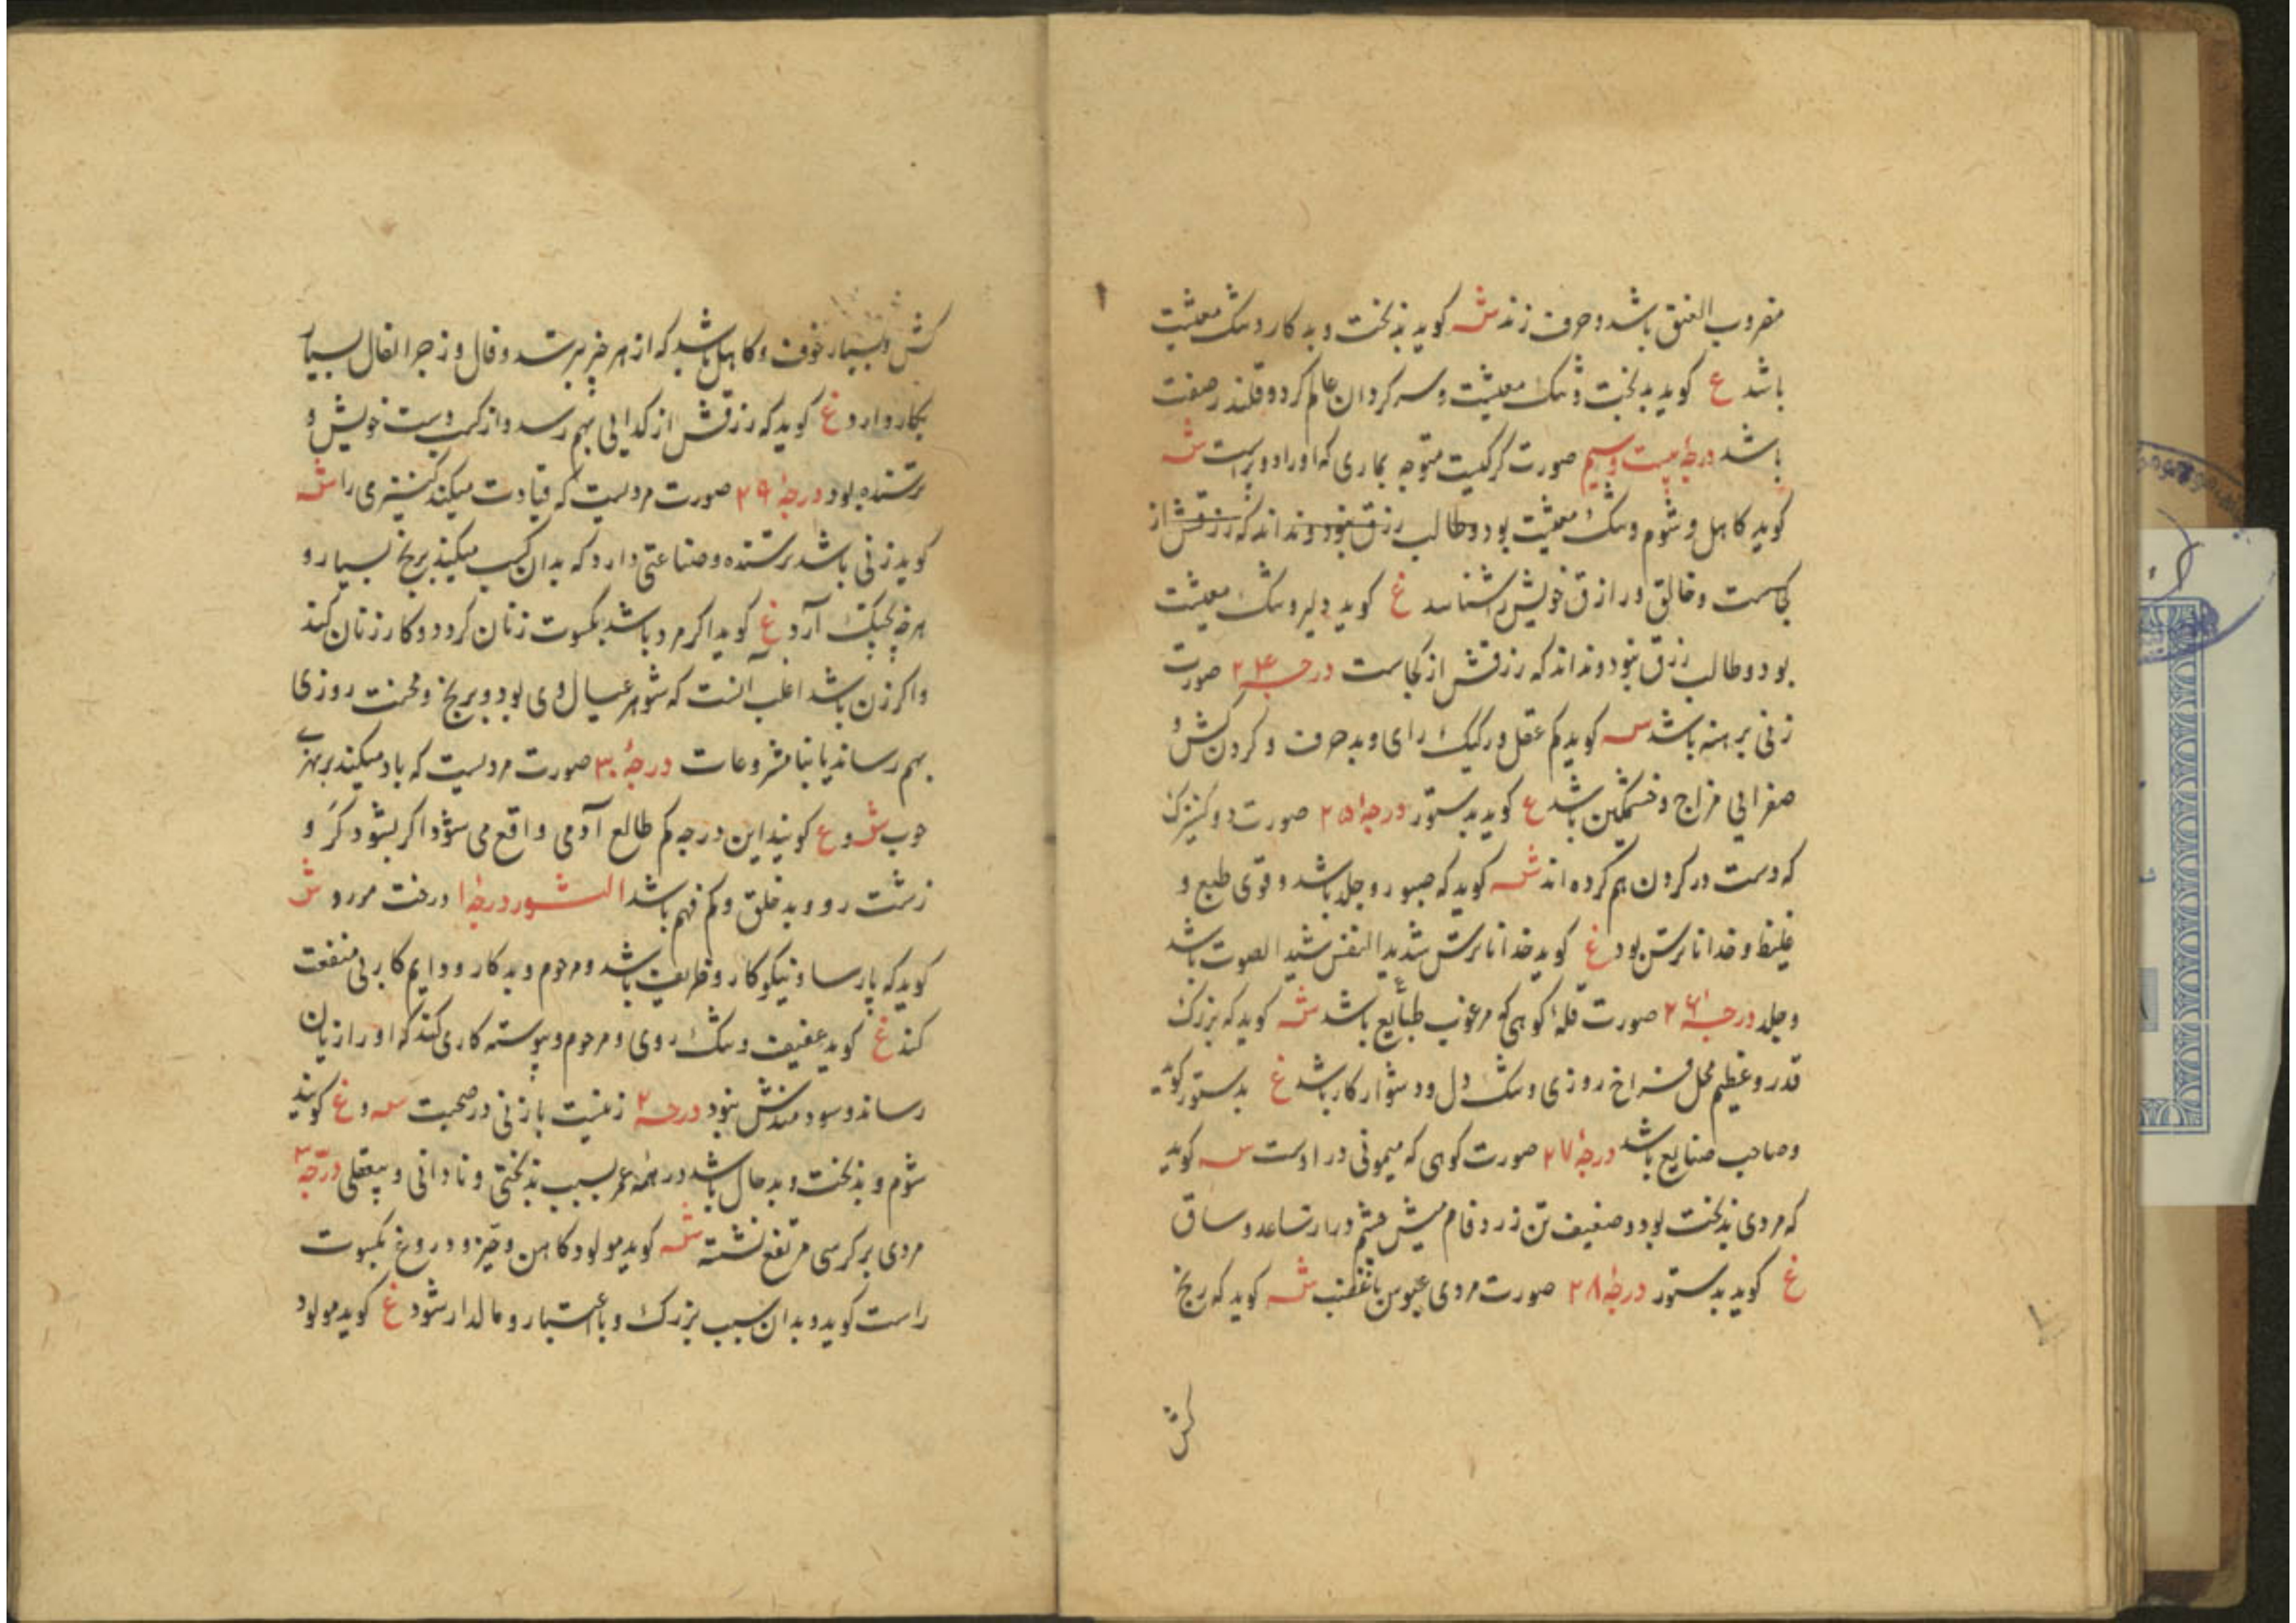 مضروب العنق باشد و حرف زند ش کوید بدبخت و بد کار و تنک معیشت
باشد ع کوید بدبخت و تنک معیشت و سرکردان عالم کردد و قلندر صفت
باشد درجهٔ بیست و سیم صورت کرکیست متوجه بماری که او را دو پراست ش
کوید کاهل و شوم و تنک معیشت بود و طالب رزق نبود و نداند که رزقش از
کجاست و خالق و رازق خویش را شناسد غ کوید دلیر و تنک معیشت
بود و طالب رزق نبود و نداند که رزقش از کجاست درجهٔ ۲۴ صورت
زنی برهنه باشد س کوید کم عقل و رکیک رای و بد حرف و کردن کش و
صفرایی مزاج و خشمکین باشد ع کوید بدستور درجهٔ ۲۵ صورت دو کنیزک
که دست در کردن هم کرده اند ش کوید که صبور و جلد باشد و قوی طبع و
غلیظ و خدا ناترس بود غ کوید خدا ناترس شدید النفس شدید الصوت باشد
و جلد درجهٔ ۲۶ صورت قلهٔ کوهی که مرغوب طبایع باشد ش کوید که بزرک
قدر و عظیم محل فراخ روزی و تنک دل و دشوار کار باشد غ بدستور کوید
و صاحب صنایع باشد درجهٔ ۲۷ صورت کوهی که میمونی در اوست س کوید
که مردی بدبخت بود و ضعیف تن زرد فام میش چشم و ساعد و ساق
غ کوید بدستور درجهٔ ۲۸ صورت مردی عبوس با غضب ش کوید که رنج
کش
کش و بسیار خوف و کاهل باشد که از هر چیز بترسد و فال و زجر الفال بسیار
بکار دارد غ کوید که رزقش از کدایی بهم رسد و از کسب دست خویش و
ترسنده بود درجهٔ ۲۹ صورت مردیست که قیادت میکند کنیزی را ش
کوید زنی باشد ترسنده و صناعتی دارد که بدان کسب میکند برنج بسیار و
هرچه بچنک آرد غ کوید اکر مرد باشد بکسوت زنان کردد و کار زنان کند
و اکر زن باشد اغلب آنست که شوهر عیال وی بود و برنج و محنت روزی
بهم رساند یا بنامشروعات درجهٔ ۳۰ صورت مردیست که باد میکند بر
چوب ش و ع کویند این درجه کم طالع آدمی واقع می شود اکر بشود کر و
زشت رو و بد خلق و کم فهم باشد الثور درجهٔ ۱ درخت مررو ش
کوید که پارسا و نیکوکار و ظریف باشد و مرحوم و بد کار و دایم کار بی منفعت
کند غ کوید عفیف و تنک روی و مرحوم و پیوسته کاری کند که او را زیان
رساند و سودمندش نبود درجهٔ ۲ زنیست با زنی در صحبت س و غ کویند
شوم و بدبخت و بد حال باشد در همه عمر بسبب بدبختی و نادانی و بیعقلی درجهٔ ۳
مردی بر کرسی مرتفع نشسته ش کوید مولود کاهن و و دروغ بکسوت
راست کوید و بدان سبب بزرک و با اعتبار و مالدار شود غ کوید مولود